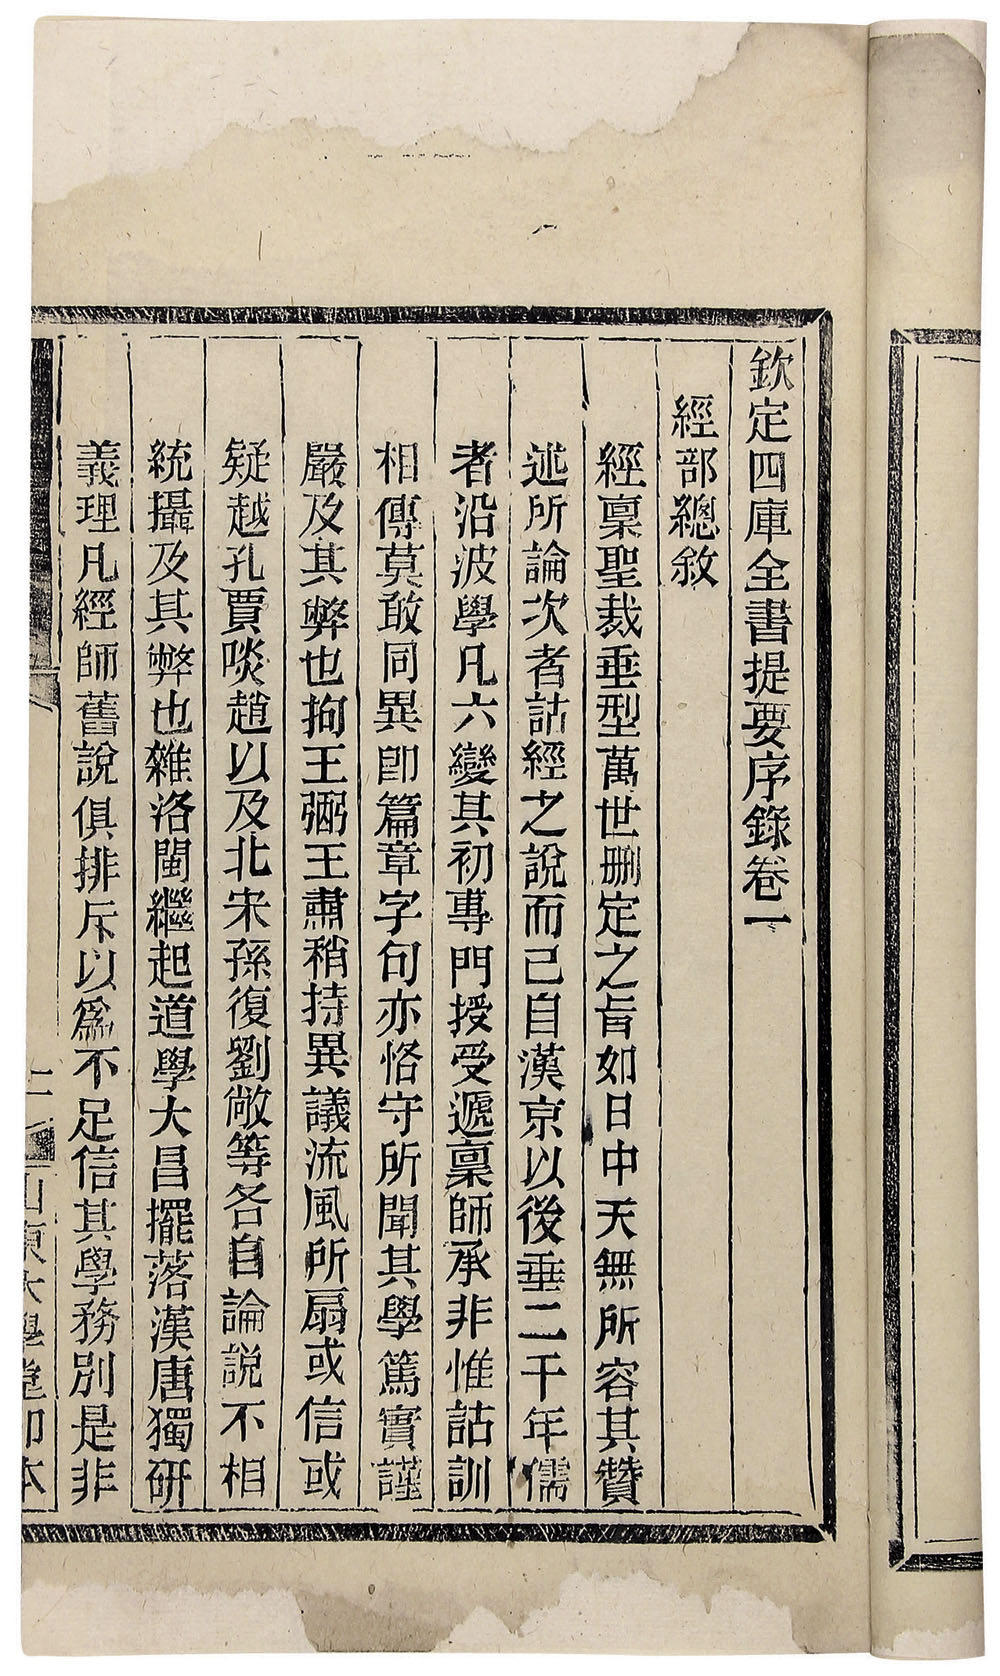 欽定四庫全書提要序錄卷一
經部總敘
經稟聖裁垂型萬世删定之旨如日中天無所容其贊
述所論次者詁經之說而已自漢京以後垂二千年儒
者沿波學凡六變其初專門授受遞稟師承非惟詁訓
相傳莫敢同異卽篇章字句亦恪守所聞其學篤實謹
嚴及其弊也拘王弼王肅稍持異議流風所扇或信或
疑越孔賈啖趙以及北宋孫復劉敞等各自論說不相
統攝及其弊也雜洛閩繼起道學大昌擺落漢唐獨研
義理凡經師舊說俱排斥以爲不足信其學務別是非
山東大學堂印本